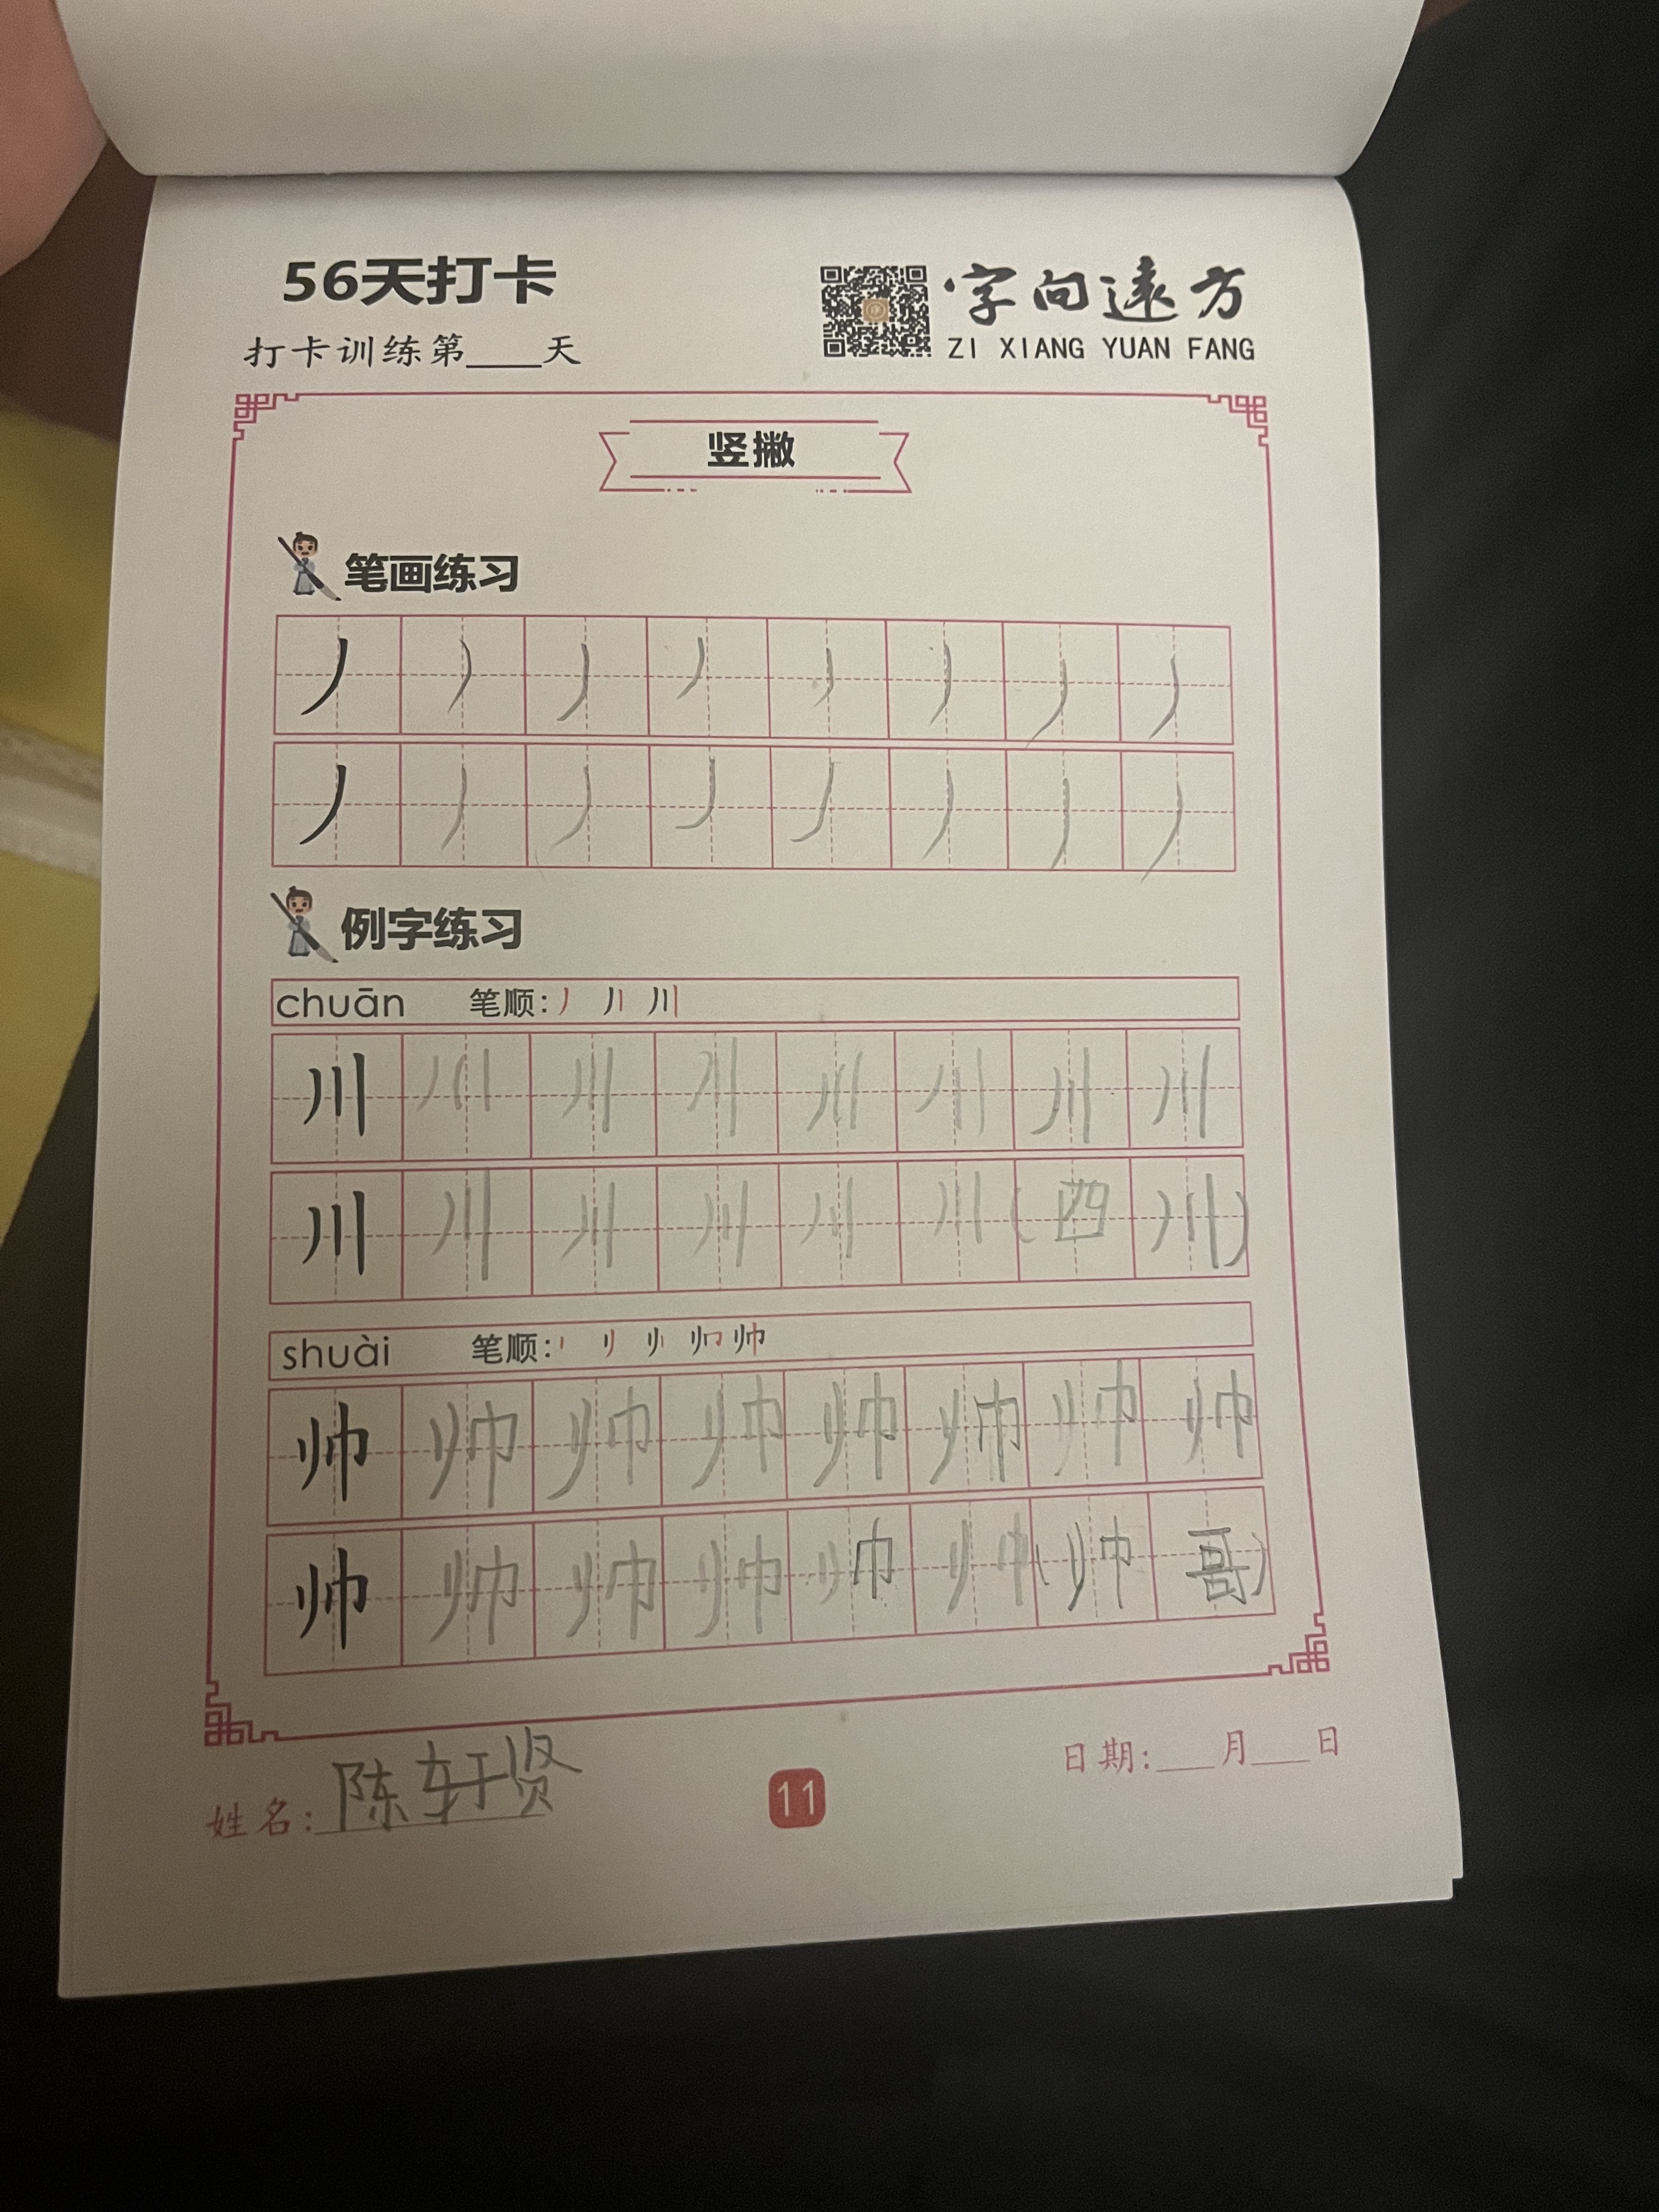 56天打卡
字向遠方
打卡训练第____天
ZI XIANG YUAN FANG
竖撇
笔画练习
丿 丿 丿 丿 丿 丿 丿 丿
丿 丿 丿 丿 丿 丿 丿 丿
例字练习
chuān 笔顺: 丿 丿丨 川
川 川 川 川 川 川 川 川
川 川 川 川 川 川 (四 川)
shuài 笔顺: 帅
帅 帅 帅 帅 帅 帅 帅 帅
帅 帅 帅 帅 帅 帅 (帅 哥)
姓名: 陈轩贤
11
日期:___月___日